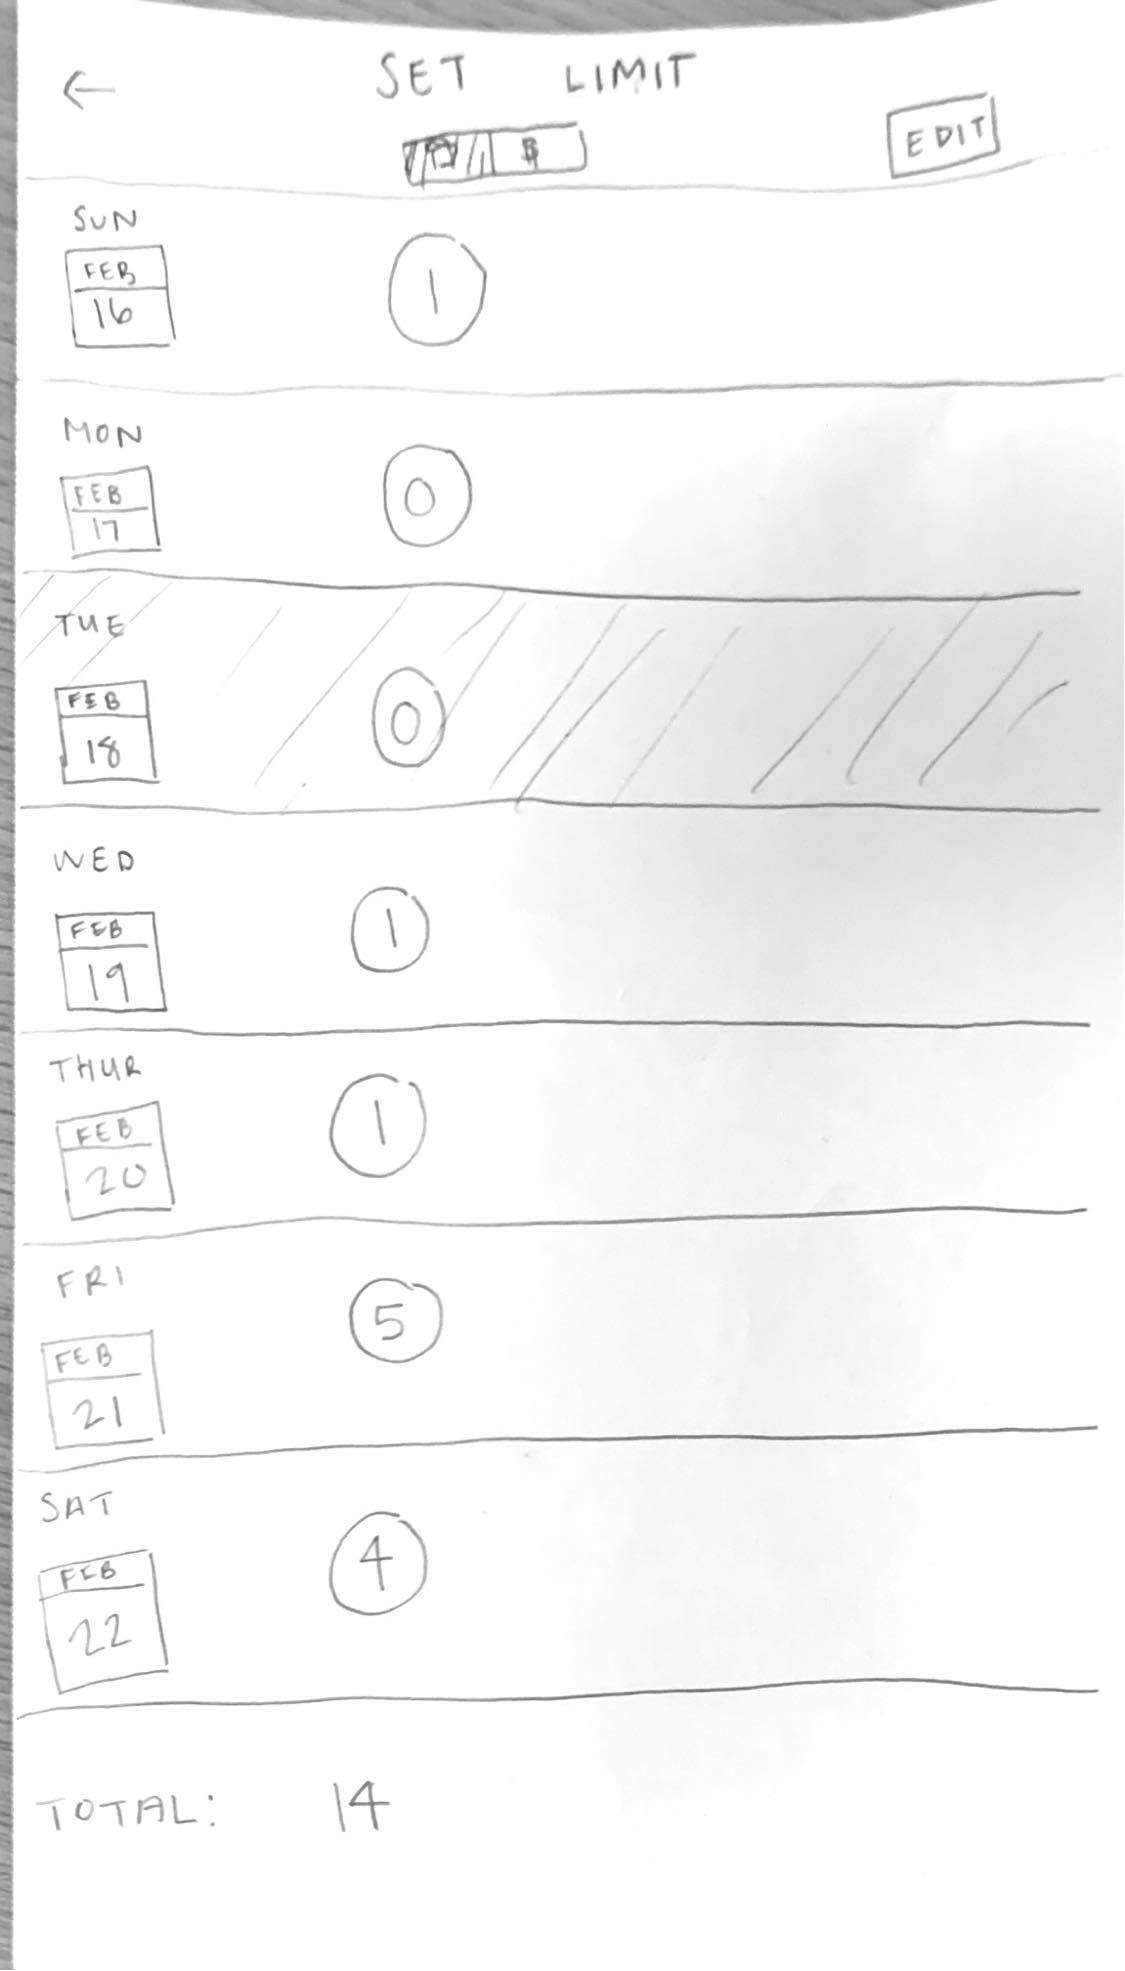 ←
SET LIMIT
$
EDIT
SUN
FEB
16
1
MON
FEB
17
0
TUE
FEB
18
0
WED
FEB
19
1
THUR
FEB
20
1
FRI
FEB
21
5
SAT
FEB
22
4
TOTAL: 14